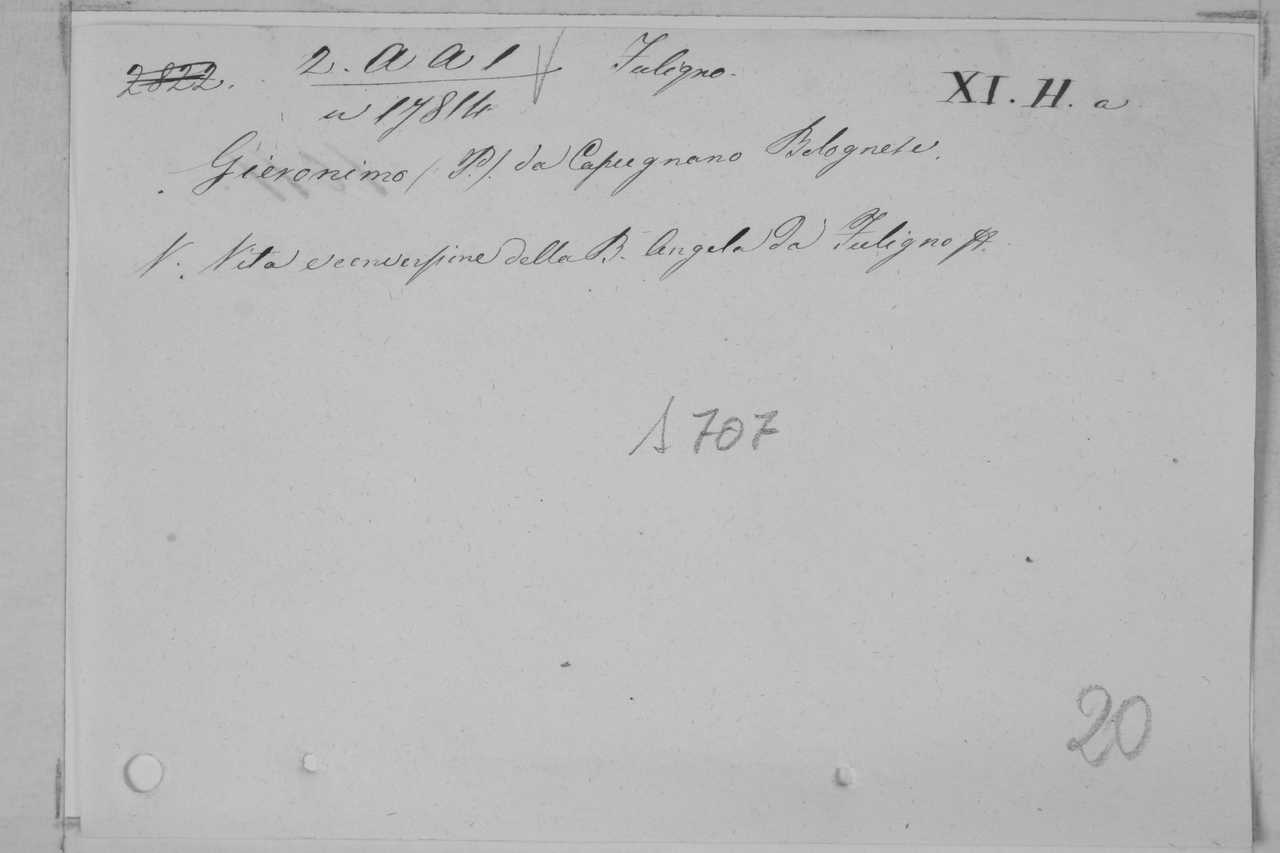 2822. 2. a a 1 Fuligno. XI. H. a
u 17814
Gieronimo (P.). da Capugnano Bolognese.
V. Vita e conversione della B. Angela da Fuligno
S 707
20